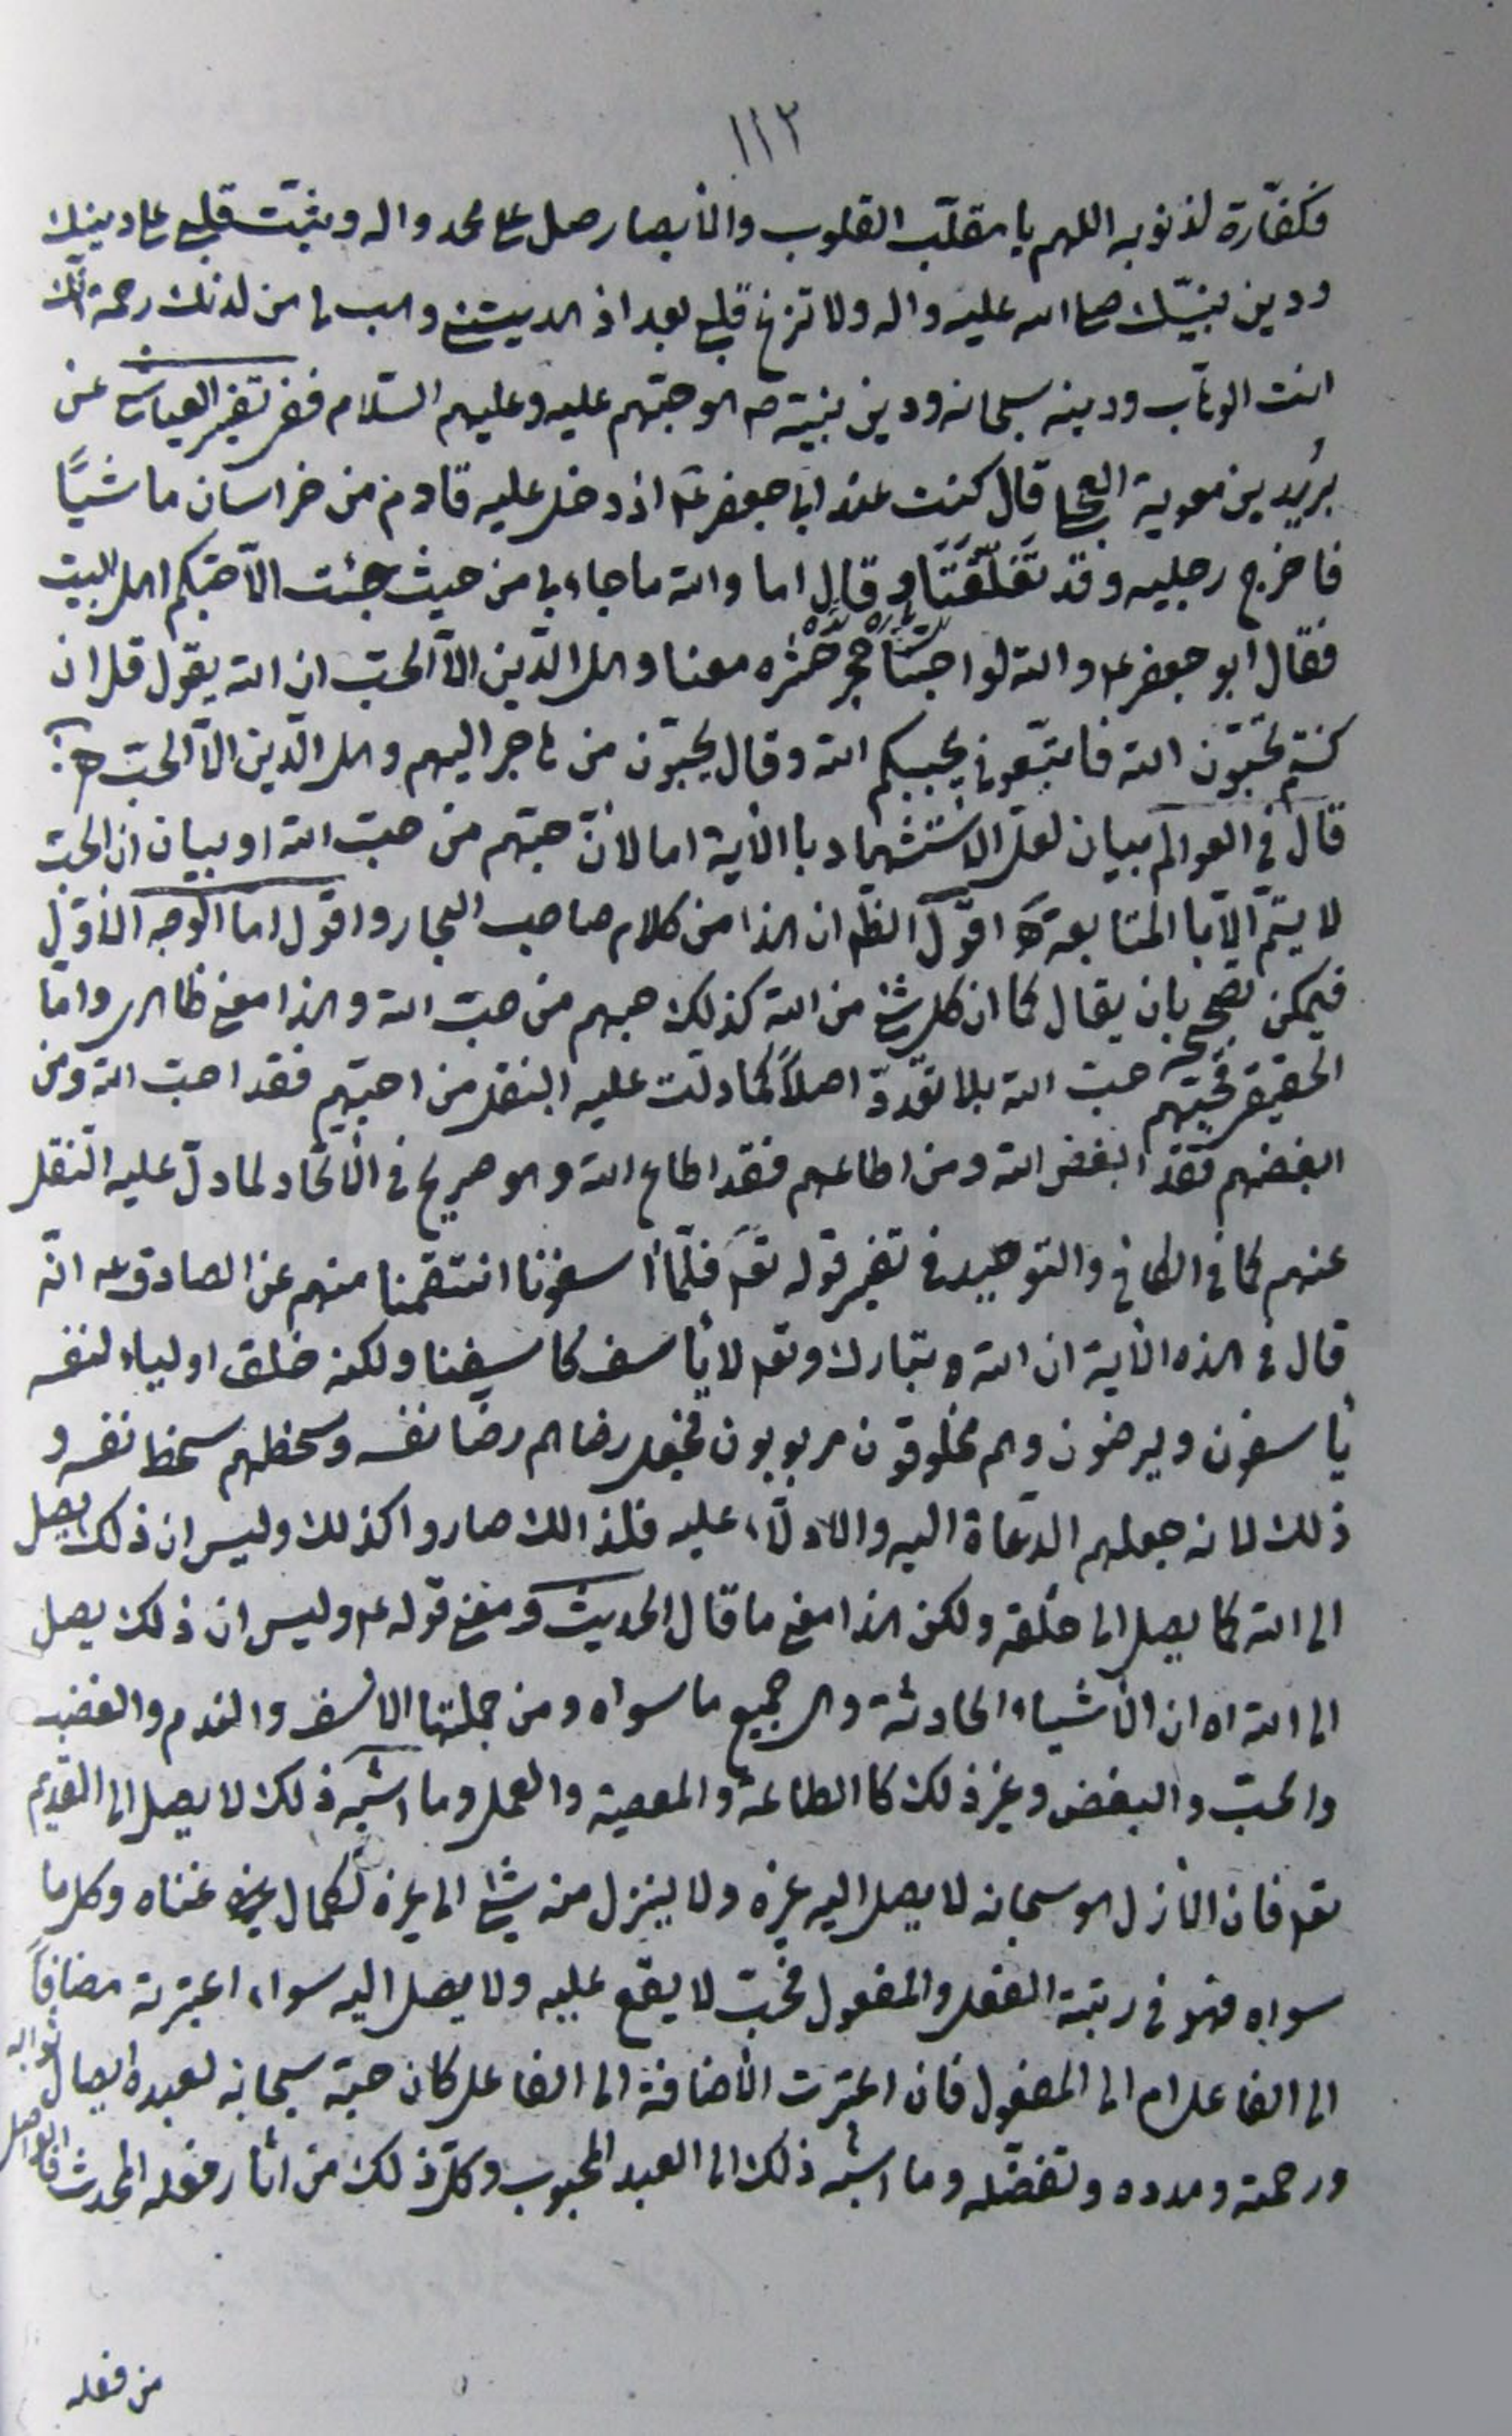 ١١٢
فكفّارة لذنوبه اللهم يا مقلّب القلوب والأبصار صل على محمد واله وثبّت قلبي على دينك
ودين نبيّك صلى الله عليه واله ولا تزغ قلبي بعد اذ هديتني وهب لي من لدنك رحمة انّك
انت الوهّاب ودينه سبحانه ودين نبيّه ص هو حبّهم عليه وعليهم السّلام ففي تفسير العياشي عن
بُريد بن معوية العجلي قال كنت عند ابي جعفر ع اذ دخل عليه قادم من خراسان ماشيًا
فاخرج رجليه وقد تغلّفتا وقال اما والله ما جاء بي من حيث جئت الّا حبّكم اهل البيت
فقال ابو جعفر ع والله لو احبّنا حجر حشره معنا وهل الدّين الّا الحبّ ان الله يقول قل ان
كنتم تحبّون الله فاتبّعوني يحببكم الله وقال يحبّون من هاجر اليهم وهل الدّين الّا الحبّ ه
قال في العوالم بيان لعل الاستشهاد بالأية اما لأنّ حبّهم من حبّ الله او بيان ان الحبّ
لا يتمّ الّا بالمتابعة ه اقول الظ ان هذا من كلام صاحب البحار واقول اما الوجه الأوّل
فيمكن تصحيحه بان يقال كما ان كل شئ من الله كذلك حبهم من حبّ الله وهذا معنى ظاهري وامّا
الحقيقي فحبّهم حبّ الله بلا تعّدد اصلاً كما دلّت عليه النقل من احبّهم فقد احبّ الله ومن
ابغضهم فقد ابغض الله ومن اطاعهم فقد اطاع الله وهو صريح في الأتحاد لما دلّ عليه النّقل
عنهم كما في الكافي والتوحيد في تفسير قوله تع فلمّا أسفونا انتقمنا منهم عن الصادق ع انّه
قال في هذه الأية ان الله تبارك وتع لا يأسف كاسفنا ولكنه خلق اولياء لنفسه
يأسفون ويرضون وهم مخلوقون مربوبون فجعل رضاهم رضا نفسه وسخطهم سخط نفسه و
ذلك لانه جعلهم الدّعاة اليه والادلّاء عليه فلذالك صاروا كذلك وليس ان ذلك يصل
الى الله كما يصل الى خلقه ولكن هذا معنى ما قال الحديث ومعنى قوله ع وليس ان ذلك يصل
الى الله اه ان الأشياء الحادثة وهي جميع ما سواه ومن جملتها الاسف والندم والغضب
والحبّ والبغض وغير ذلك كالطاعة والمعصية والعمل وما اشبه ذلك لا يصل الى القديم
تع فان الأزل هو سبحانه لا يصل اليه غيره ولا ينزل منه شئ الى غيره لكمال غناه وكل ما
سواه فهو في رتبة الفعل والمفعول فحبّ لا يقع عليه ولا يصل اليه سواء اعتبرته مضافاً
الى الفاعل ام الى المفعول فان اعتبرت الأضافة الى الفاعل كان حبّه سبحانه لعبده ايصال ثوابه
ورحمته ومدده وتفضّله وما اشبه ذلك الى العبد المحبوب وكلّ ذلك من اثار فعله المحدث فالواصل
من فعله